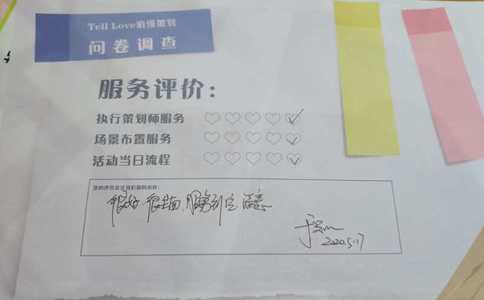 Tell Love浪漫策划
问卷调查
服务评价:
执行策划师服务
场景布置服务
活动当日流程
很好 很全面 服务到位 满意
2020.5.17